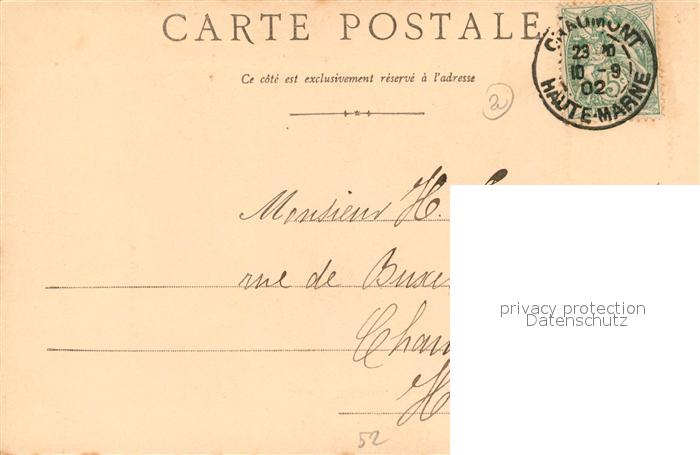 CARTE POSTALE
Ce côté est exclusivement réservé à l'adresse
CHAUMONT
23 10
10 - 9
02
HAUTE-MARNE
Monsieur H.
rue de Buxe
Chau
H
52
privacy protection
Datenschutz